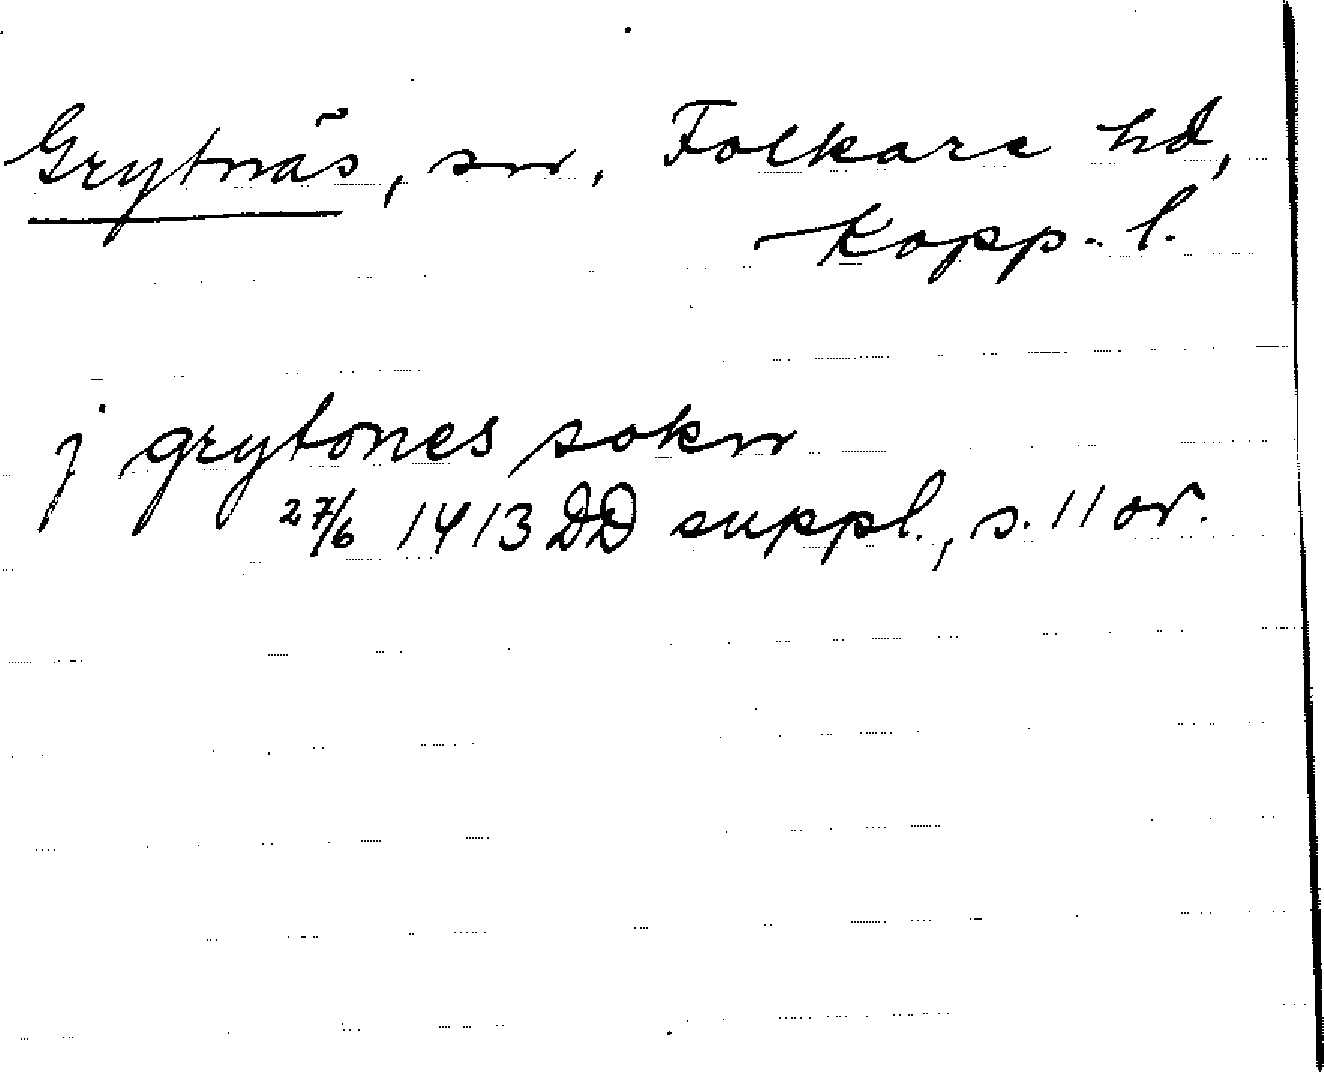 Grytnäs, sn, Folkare hd,
Kopp. l.
j grytones sokn
27/6 1413 DD suppl., s. 11 or.